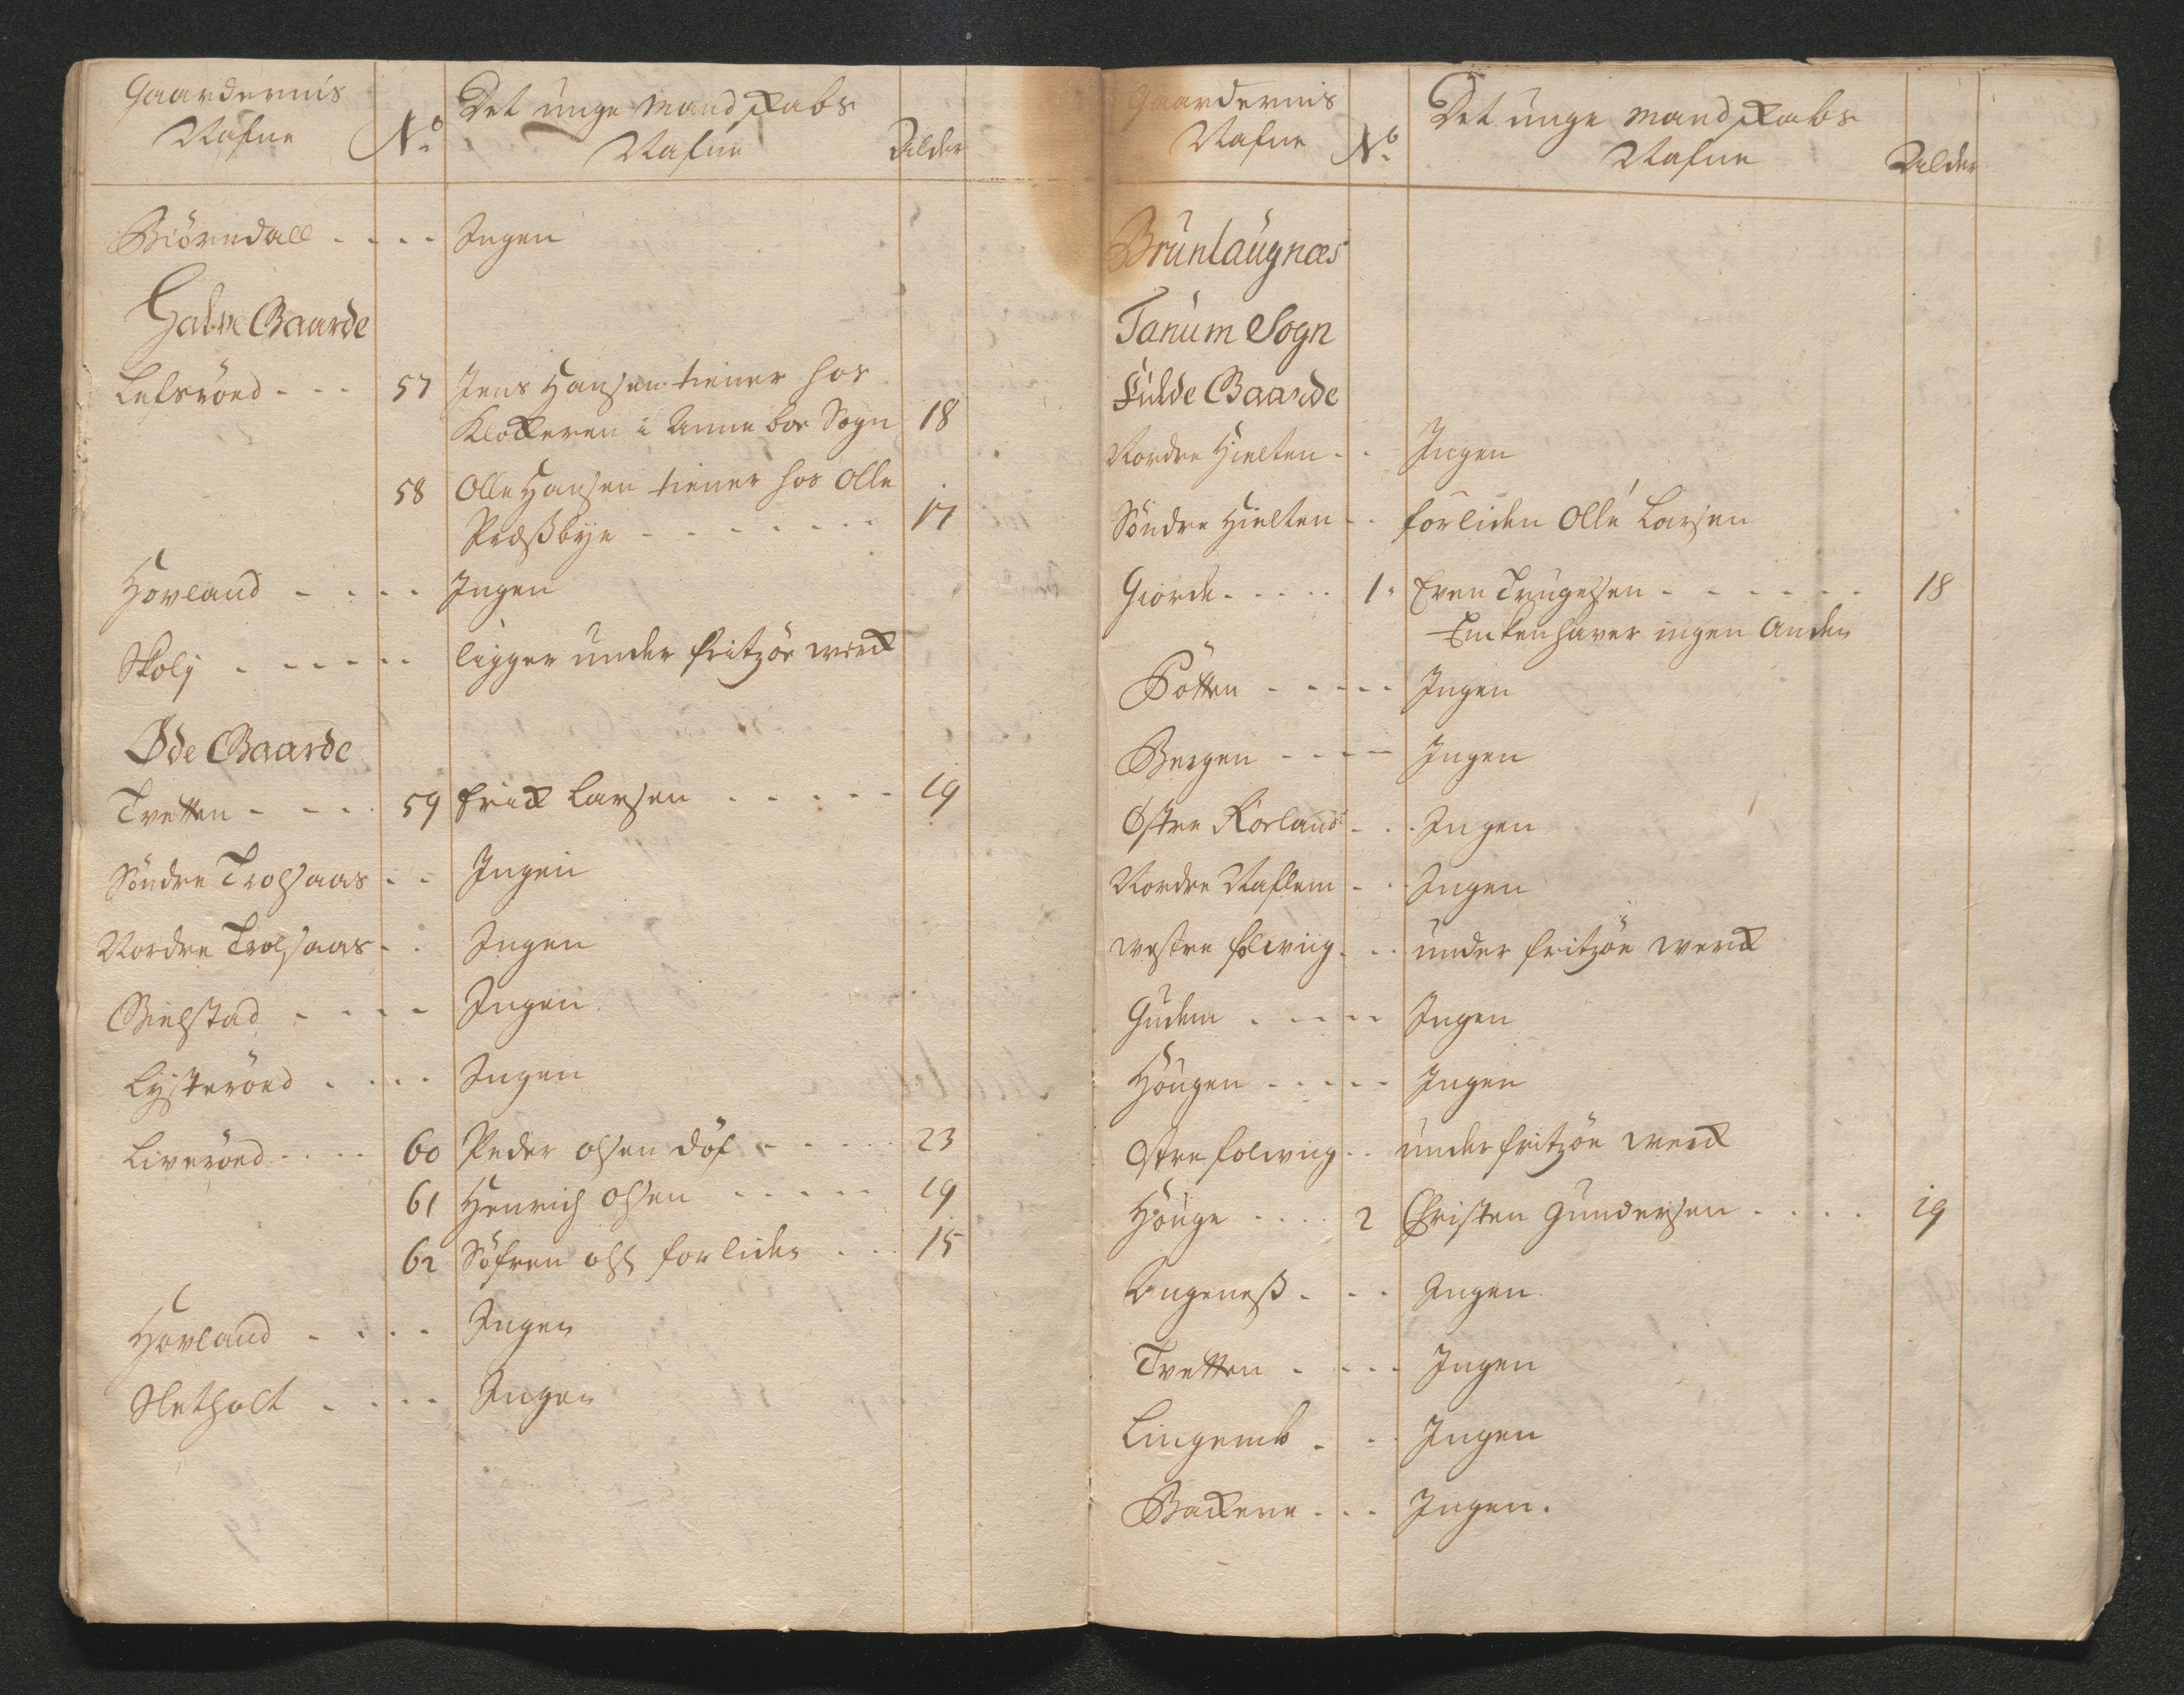 Gaardernis
Nafne
No
Det unge Mandskabs
Nafne
Alder
Biörndall - - - - Ingen
Halve Gaarde
Lefsröed - - - 57 Jens Hansen tiener hos
Klokkeren i Anneboe Sogn 18
58 Olle Hansen tiener hos Olle
Præstbye - - - - - - - 17
Hovland - - - - Ingen
Skoly - - - - - ligger under Fritzöe Werck
Øde Gaarde
Tvetten - - - 59 Erick Larsen - - - - - 19
Söndre Trolsaas - - Ingen
Nordre Trolsaas - - Ingen
Gielstad - - - - Ingen
Lysteröed - - - - Ingen
Liveröed - - - - 60 Peder Olsen döf - - - - 23
61 Henrich Olsen - - - - - 19
62 Söfren Ols: forliden - - - 15
Hovland - - - - Ingen
Sletholt - - - - Ingen
Gaardernis
Nafne
No
Det unge Mandskabs
Nafne
Alder
Brunlaugnæs
Tanum Sogn
Fulde Gaarde
Nordre Hielten - - Ingen
Söndre Hielten - - forliden Olle Larsen
Giorde - - - - - 1. Even Trugelsen - - - - - - 18
Enken haver ingen Anden
Götten - - - - - Ingen
Bergen - - - - Ingen
Östre Rörland - - - Ingen
Nordre Naflem - - - Ingen
Westre Holwiig - - - under Fritzöe Werck
Gudem - - - - - Ingen
Hougen - - - - - Ingen
Östre Holwiig - - under Fritzöe Werck
Houge - - - - 2 Christen Gundersen - - - - 19
Angeneß - - - Ingen
Tvetten - - - - Ingen
Lingemb - - - Ingen
Backene - - - Ingen.